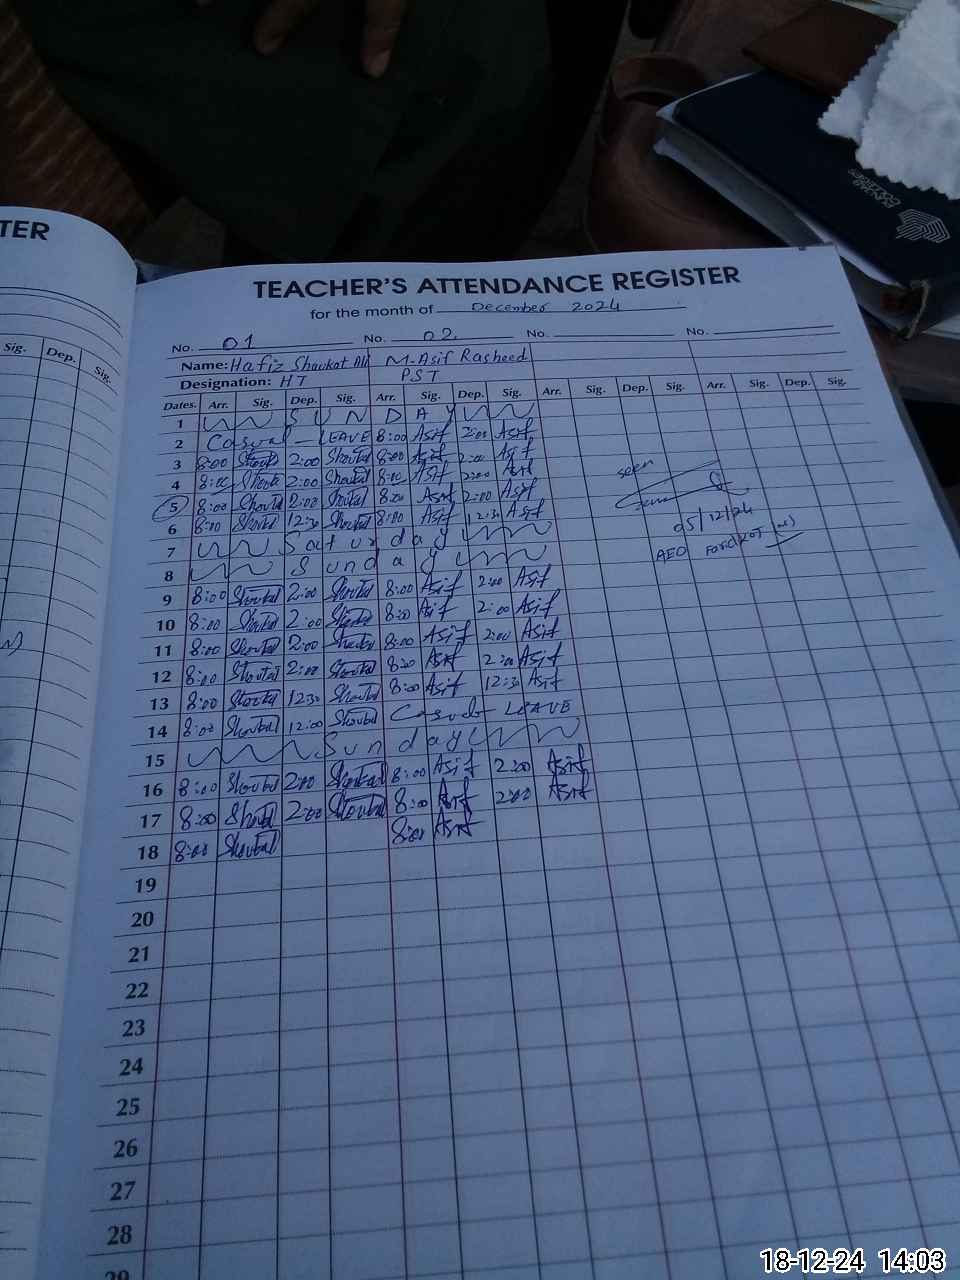 TER
TEACHER'S ATTENDANCE REGISTER
for the month of December 2024
No. 01 No. 02 No. No.
Name: Hafiz Shoukat Ali M-Asif Rasheed
Designation: HT PST
Sig. Dep. Sig.
Dates. Arr. Sig. Dep. Sig. Arr. Sig. Dep. Sig. Arr. Sig. Dep. Sig. Arr. Sig. Dep. Sig.
1 SUNDAY
2 Casual - LEAVE 8:00 Asif 2:00 Asif
3 8:00 Shoukat 2:00 Shoukat 8:00 Asif 2:00 Asif
4 8:00 Shoukat 2:00 Shoukat 8:00 Asif 2:00 Asif
5 8:00 Shoukat 2:00 Shoukat 8:00 Asif 2:00 Asif
6 8:00 Shoukat 12:30 Shoukat 8:00 Asif 12:30 Asif
7 Saturday
8 Sunday
9 8:00 Shoukat 2:00 Shoukat 8:00 Asif 2:00 Asif
10 8:00 Shoukat 2:00 Shoukat 8:00 Asif 2:00 Asif
11 8:00 Shoukat 2:00 Shoukat 8:00 Asif 2:00 Asif
12 8:00 Shoukat 2:00 Shoukat 8:00 Asif 2:00 Asif
13 8:00 Shoukat 12:30 Shoukat 8:00 Asif 12:30 Asif
14 8:00 Shoukat 12:00 Shoukat Casual LEAVE
15 Sunday
16 8:00 Shoukat 2:00 Shoukat 8:00 Asif 2:00 Asif
17 8:00 Shoukat 2:00 Shoukat 8:00 Asif 2:00 Asif
18 8:00 Shoukat 8:00 Asif
19
20
21
22
23
24
25
26
27
28
29
seen
05/12/24
AEO
18-12-24 14:03